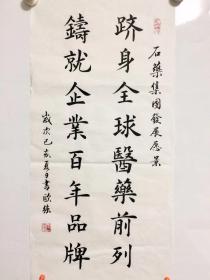 石藥集團發展愿景
躋身全球醫藥前列
鑄就企業百年品牌
歲次己亥夏日書歐強